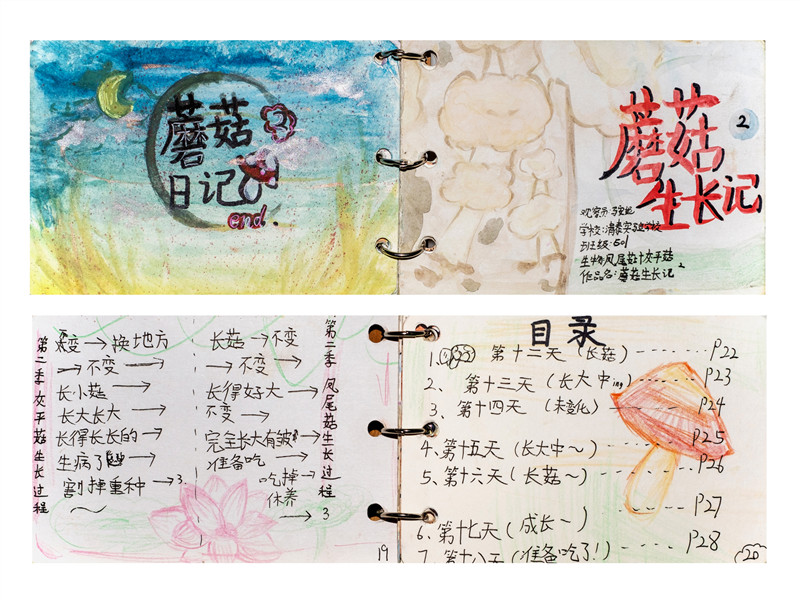 蘑菇
日记
end.
2
蘑菇
生长记
学校:清泰实验学校
班级:501
生物:凤尾菇+平菇
作品名:蘑菇生长记2
第二季 平菇生长过程
不变→换地方
→不变→
长小菇→
长大长大→
长得长长的→
生病了→
割掉重种→3.
长菇→不变
→不变→
长得好大→
不变→
完全长大有波→
准备吃→
吃掉→
休养
→3
第二季 凤尾菇生长过程
19
目录
1、第十二天(长菇)------P22
2、第十三天(长大中ing)----P23
3、第十四天(未变化)---P24
4、第十五天(长大中~)------P25
5、第十六天(长菇~)------P26
P27
6、第十七天(成长~)
7、第十八天(准备吃了!)----P28
20